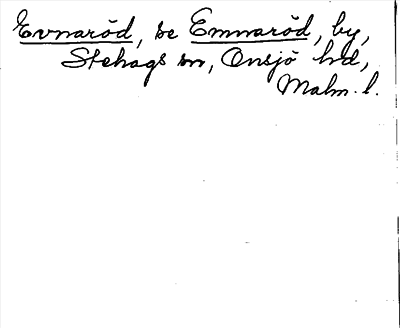 Evnaröd, se Emnaröd, by,
Stehags sn, Onsjö hd,
Malm. l.